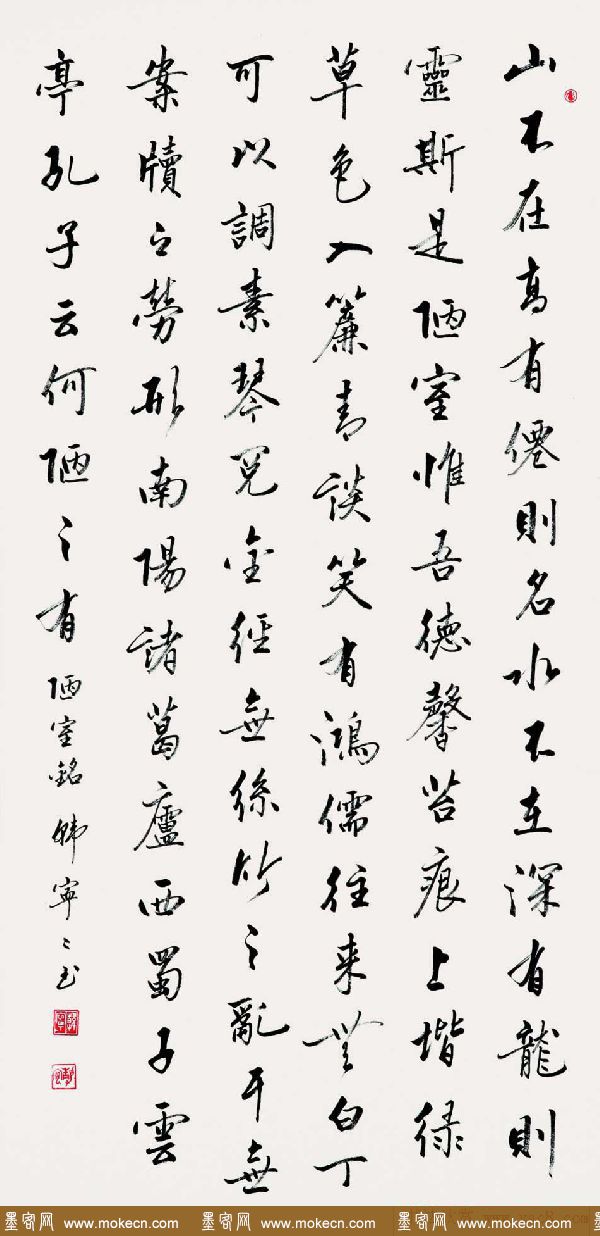 山不在高有僊則名水不在深有龍則
靈斯是陋室惟吾德馨苔痕上堦緑
草色入簾青談笑有鴻儒往来無白丁
可以調素琴閱金經無絲竹之亂耳無
案牘之勞形南陽諸葛廬西蜀子雲
亭孔子云何陋之有
陋室銘 韓寧〻书
墨客网 www.mokecn.com 墨客网 www.mokecn.com 墨客网 www.mokecn.com 墨客网